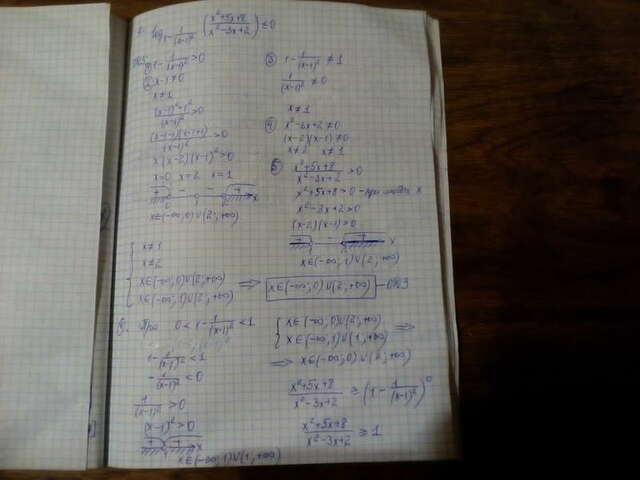 log_{1-\frac{1}{(x-1)^2}} (\frac{x^2+5x+8}{x^2-3x+2}) ≤ 0
ОДЗ
① 1 - \frac{1}{(x-1)^2} > 0
② x-1 ≠ 0
x ≠ 1
\frac{(x-1)^2-1^2}{(x-1)^2} > 0
\frac{(x-1-1)(x-1+1)}{(x-1)^2} > 0
x(x-2)(x-1)^2 > 0
x=0 x=2 x=1
+ - - + x
x∈(-∞;0)∪(2;+∞)
③ 1 - \frac{1}{(x-1)^2} ≠ 1
\frac{1}{(x-1)^2} ≠ 0
x ≠ 1
④ x^2-3x+2 ≠ 0
(x-2)(x-1) ≠ 0
x ≠ 2 x ≠ 1
⑤ \frac{x^2+5x+8}{x^2-3x+2} > 0
x^2+5x+8 > 0 - при любых x
x^2-3x+2 > 0
(x-2)(x-1) > 0
+ - + x
x∈(-∞;1)∪(2;+∞)
x ≠ 1
x ≠ 2
x∈(-∞;0)∪(2;+∞) ⟹ x∈(-∞;0)∪(2;+∞) - ОДЗ
x∈(-∞;1)∪(2;+∞)
При 0 < 1 - \frac{1}{(x-1)^2} < 1
1 - \frac{1}{(x-1)^2} < 1
-\frac{1}{(x-1)^2} < 0
\frac{1}{(x-1)^2} > 0
(x-1)^2 > 0
x
x∈(-∞;1)∪(1;+∞)
x∈(-∞;0)∪(2;+∞) ⟹
x∈(-∞;1)∪(1;+∞)
⟹ x∈(-∞;0)∪(2;+∞)
\frac{x^2+5x+8}{x^2-3x+2} ≥ (1 - \frac{1}{(x-1)^2})^0
\frac{x^2+5x+8}{x^2-3x+2} ≥ 1